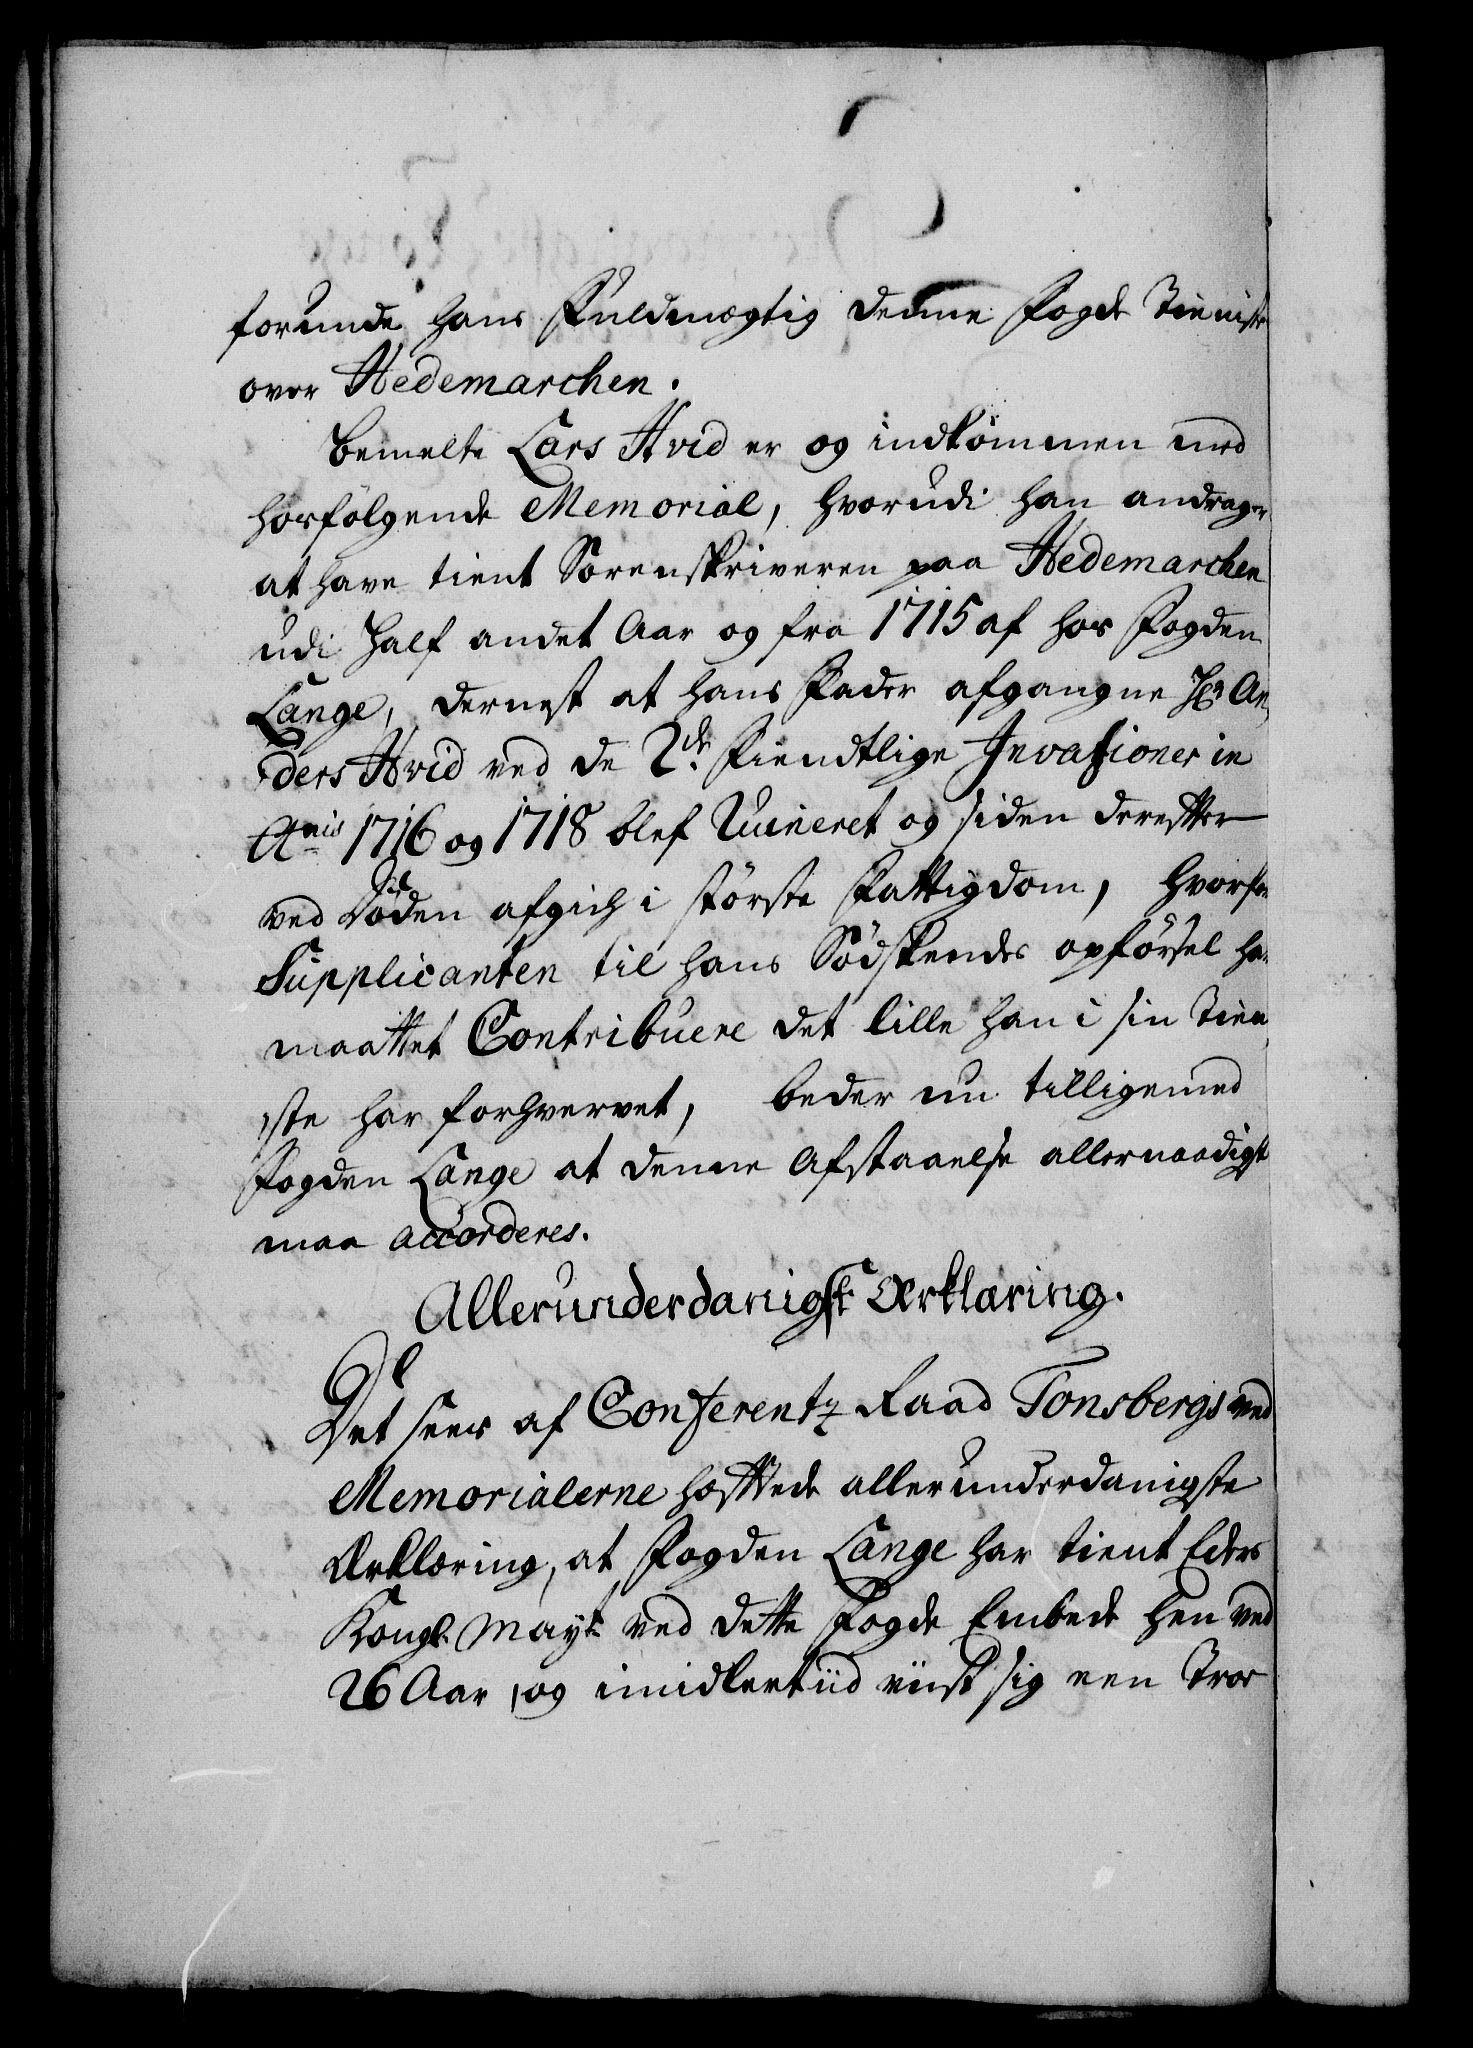 forunde hans Fuldmægtig denne Fogde Tieniste
over Hedemarchen.
Bemelte Lars Hvid er og indkommen med
hosfølgende Memorial, hvorudi han andrager
at have tient Sorenskriveren paa Hedemarchen
udi Half andet Aar og fra 1715 af hos Fogden
Lange, dernest at hans Fader afgangne Hr An¬
ders Hvid ved de 2de Fiendtlige Invasioner in
Anis 1716 og 1718 blef Ruineret og siden derefter
ved Døden afgich i største Fattigdom, hvorfor
Supplicanten til hans Sødskendes opførsel har
maattet Contribuere det lille han i sin Tiene¬
ste har forhvervet, beder nu tilligemed
Fogden Lange at denne Afstaaelse allernaadigst
maa accorderes.
Allerunderdanigst Ærklæring.
Det sees af Conferentz Raad Tonsbergs ved
Memorialerne hæfftede allerunderdanigste
Ærklæring, at Fogden Lange har tient Eders
Kongl. Mayt. ved dette Fogde Embede hen ved
26 Aar, og imidlertiid viist sig een Troe